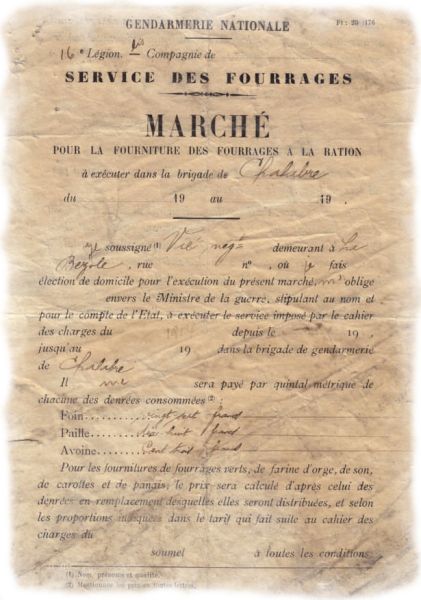 GENDARMERIE NATIONALE
16e Légion. bis Compagnie de
SERVICE DES FOURRAGES
MARCHÉ
POUR LA FOURNITURE DES FOURRAGES A LA RATION
à exécuter dans la brigade de Chalabre
du 19 au 19 .
Je soussigné (1) demeurant à La
Bezole, rue n° , où je fais
élection de domicile pour l'exécution du présent marché, m'oblige
envers le Ministre de la guerre, stipulant au nom et
pour le compte de l'Etat, à exécuter le service imposé par le cahier
des charges du depuis le 19 ,
jusqu'au 19 dans la brigade de gendarmerie
de Chalabre
Il me sera payé par quintal métrique de
chacune des denrées consommées (2) :
Foin........ vingt sept francs
Paille........ dix huit francs
Avoine........ Cent francs
Pour les fournitures de fourrages verts, de farine d'orge, de son,
de carottes et de panais, le prix sera calculé d'après celui des
denrées en remplacement desquelles elles seront distribuées, et selon
les proportions indiquées dans le tarif qui fait suite au cahier des
charges du
soumet à toutes les conditions
(1) Nom, prénoms et qualité.
(2) Mentionner les prix en toutes lettres.